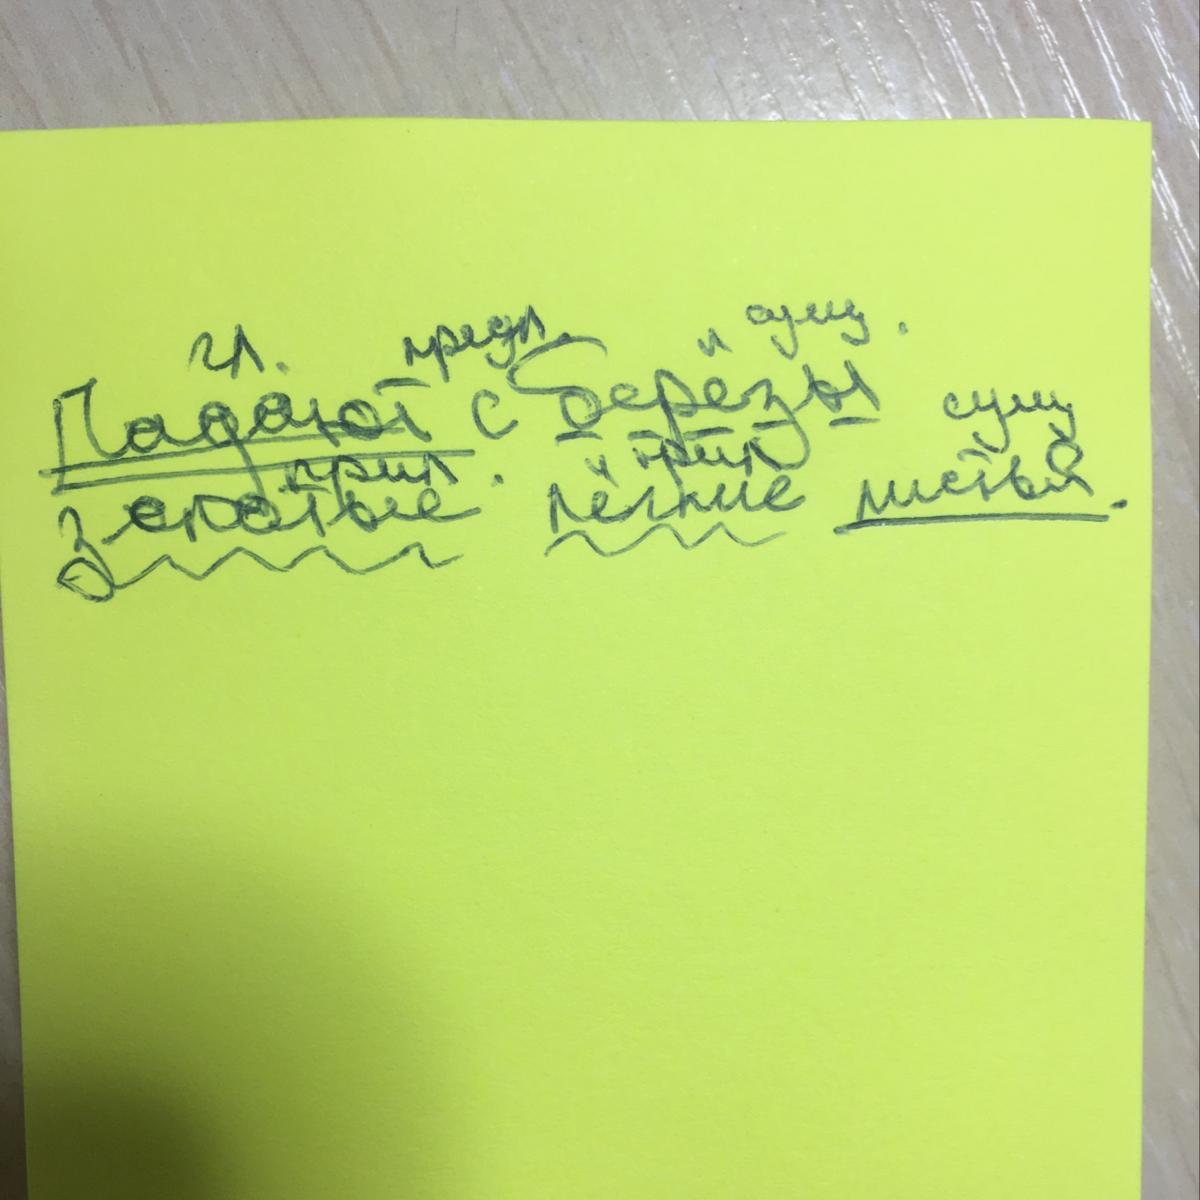 гл. предл. сущ.
Падают с берёзы
прил. прил сущ
золотые лёгкие листья.